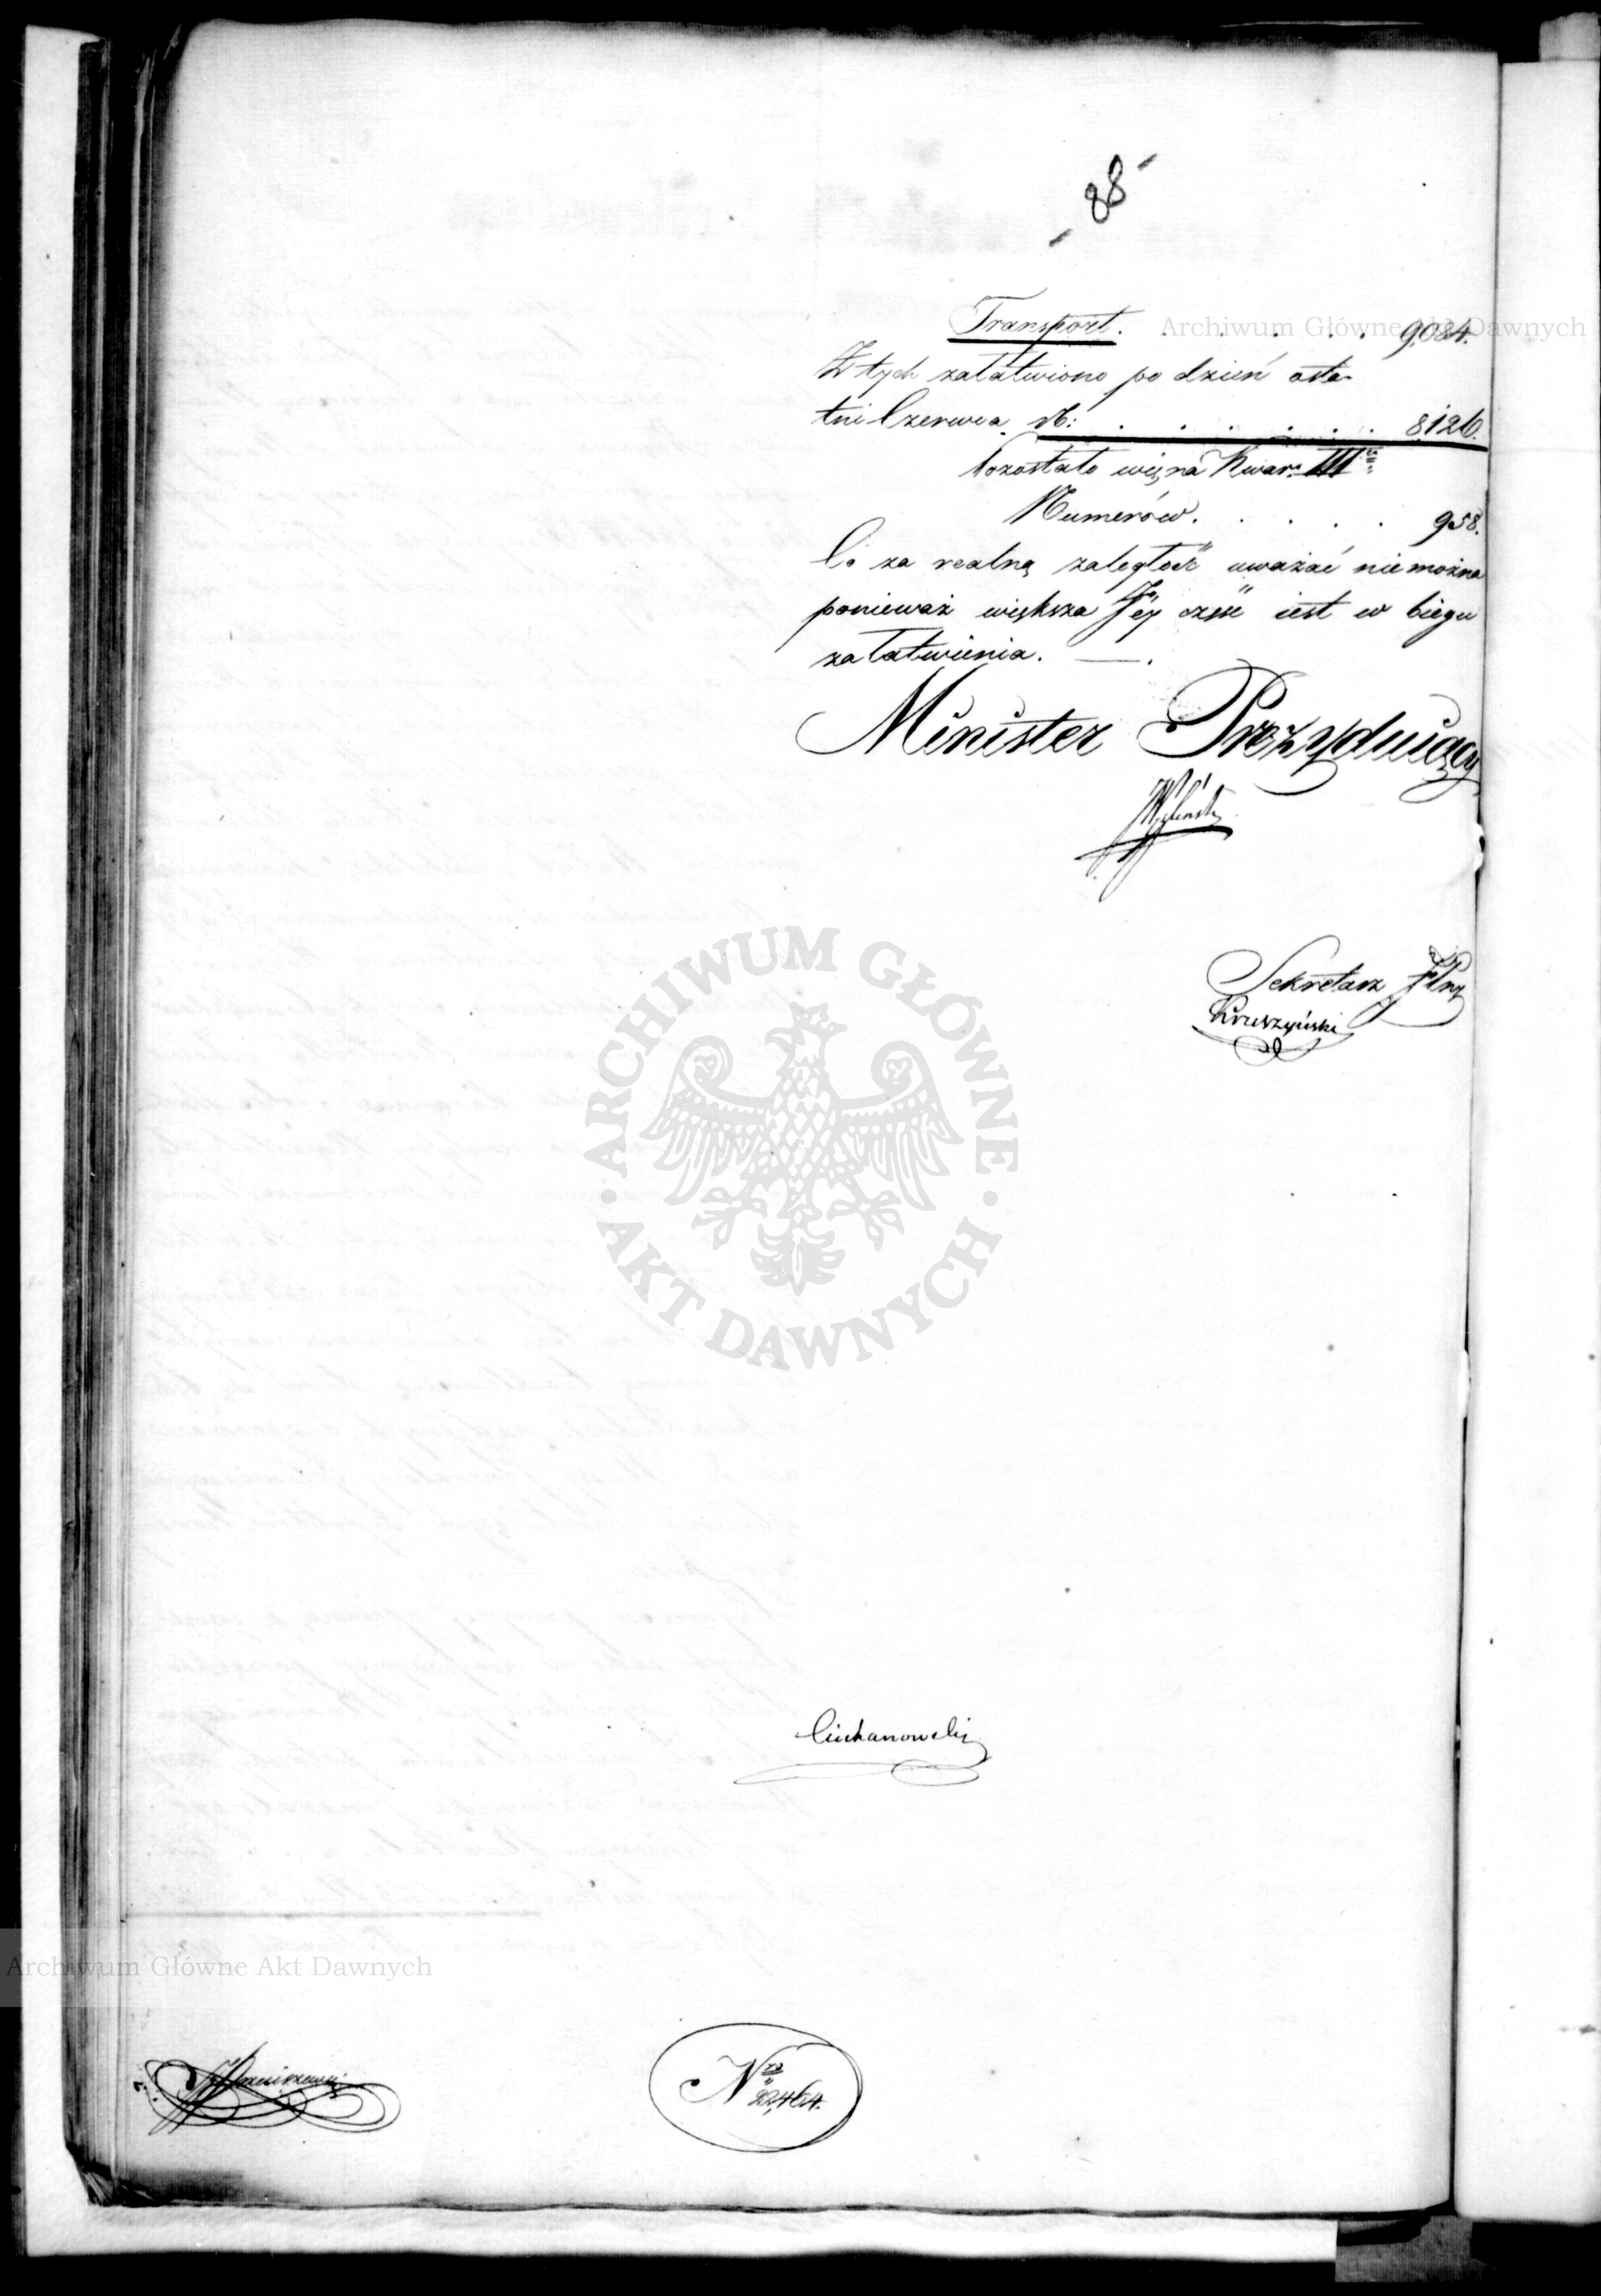 - 88 -
Transport. . . . . . 9084.
Z tych załatwiono po dzień osta-
tni Czerwca N: . . . . . . 8126.
Pozostało więc na Kwar. III
Numerów. . . . . 958.
Co za realną zaległość uważać nie można
ponieważ większa Jey część iest w biegu
załatwienia. — .
Minister Prezyduiący
Sekretarz Jlny
Kruszyński
ARCHIWUM GŁÓWNE
AKT DAWNYCH
Ciechanowski
Nro
22,464.
Archiwum Główne Akt Dawnych
Archiwum Główne Akt Dawnych